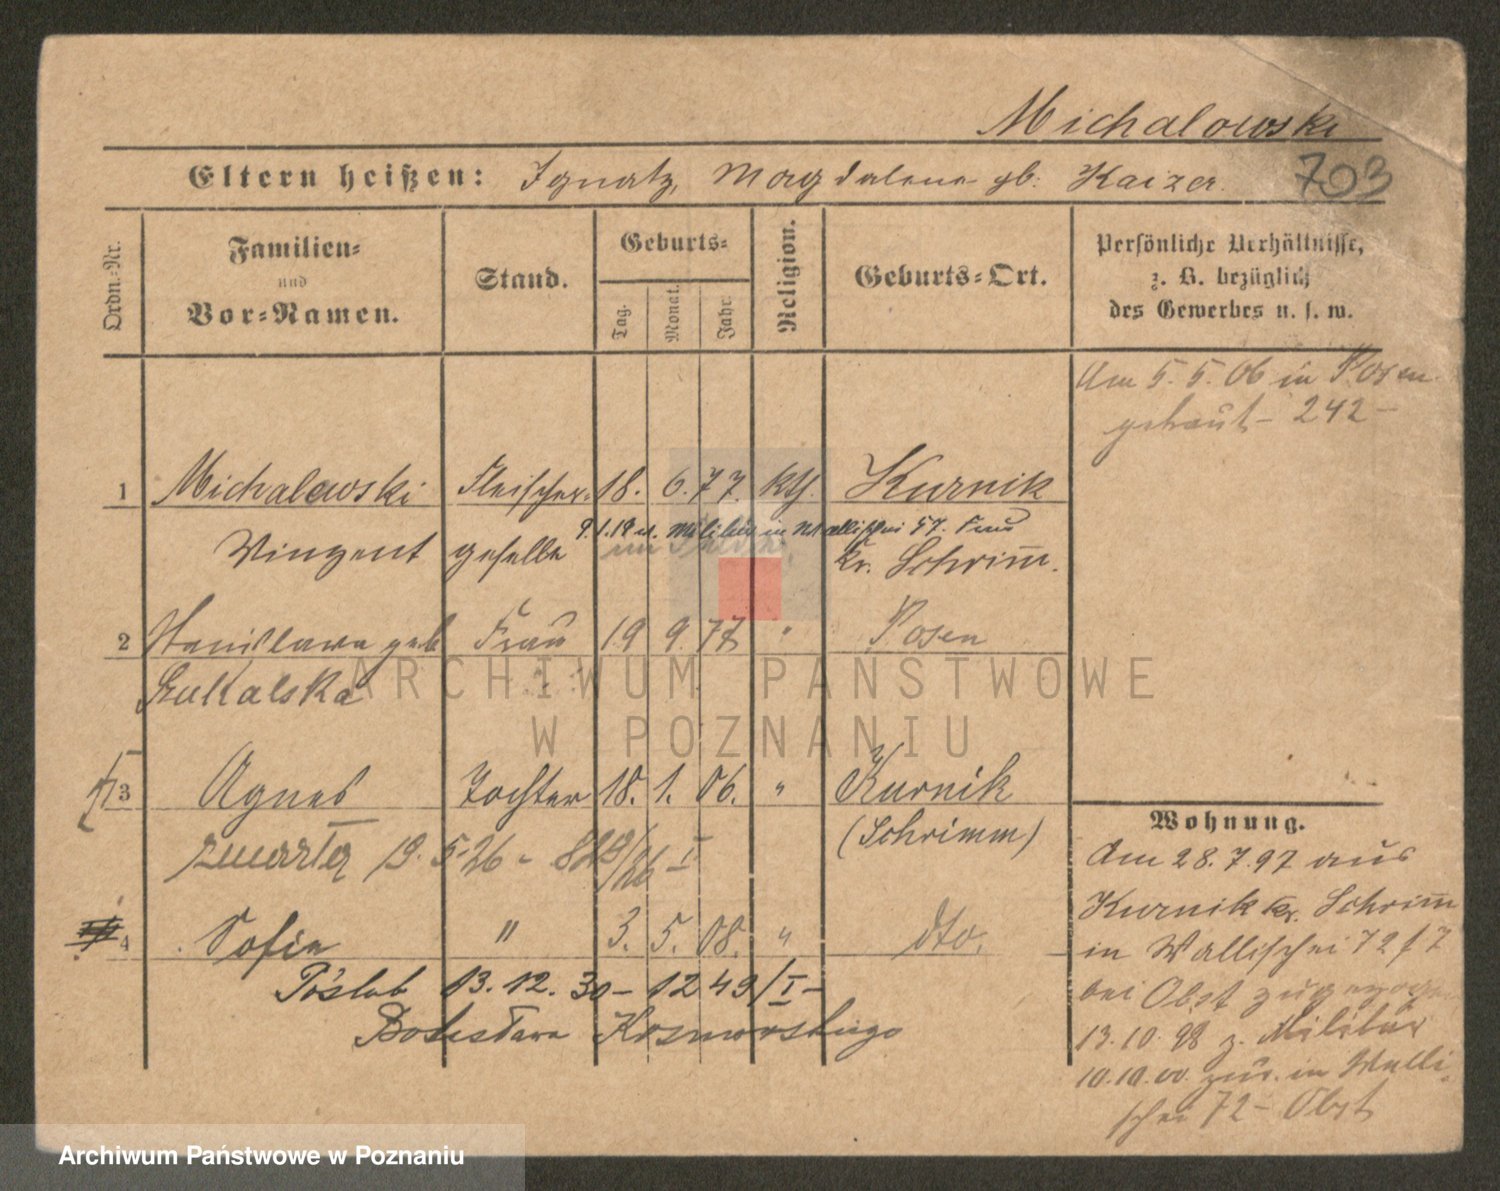 Michalowski
Eltern heißen: Ignatz, Magdalena gb. Kaizer.
703
Ordn.-Nr.
Familien-
und
Vor-Namen.
Stand.
Geburts-
Tag.
Monat.
Jahr.
Religion.
Geburts-Ort.
Persönliche Verhältnisse,
z. B. bezüglich
des Gewerbes u. s. w.
Am 5. 5. 06 in Posen
getraut - 242 -
1 Michalowski Fleischer- 18. 6. 77. kth. Kurnik
9.1.19 v. Militär in Wallischei 57.
Winzent geselle Kr. Schrimm.
2 Stanislawa geb Frau 19 9. 77 " Posen
3 Agnes Tochter 18. 1. 06. " Kurnik
(Schrimm)
zmarła 19. 5 26 - 829/26 I
4 Sofie " 3. 5. 08. " dto.
Poślub 13. 12. 30 - 1249/I -
Bolesława
Wohnung.
Am 28. 7. 97 aus
Kurnik Kr. Schrimm
in Wallischei 72
bei Obst zugezogen
13. 10. 98 z. Militär
10.10.00. zur. in Walli-
schei 72 - Obst
ARCHIWUM PAŃSTWOWE
W POZNANIU
Archiwum Państwowe w Poznaniu